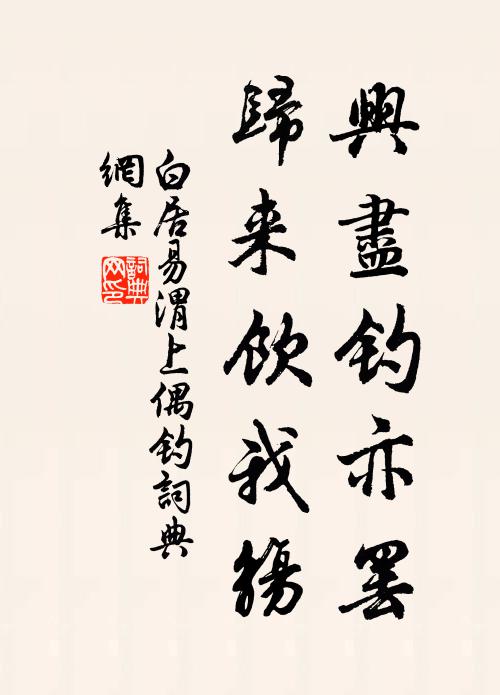 興盡釣亦罷
歸来飲我觴
白居易渭上偶釣詞典
網集
詞典網印